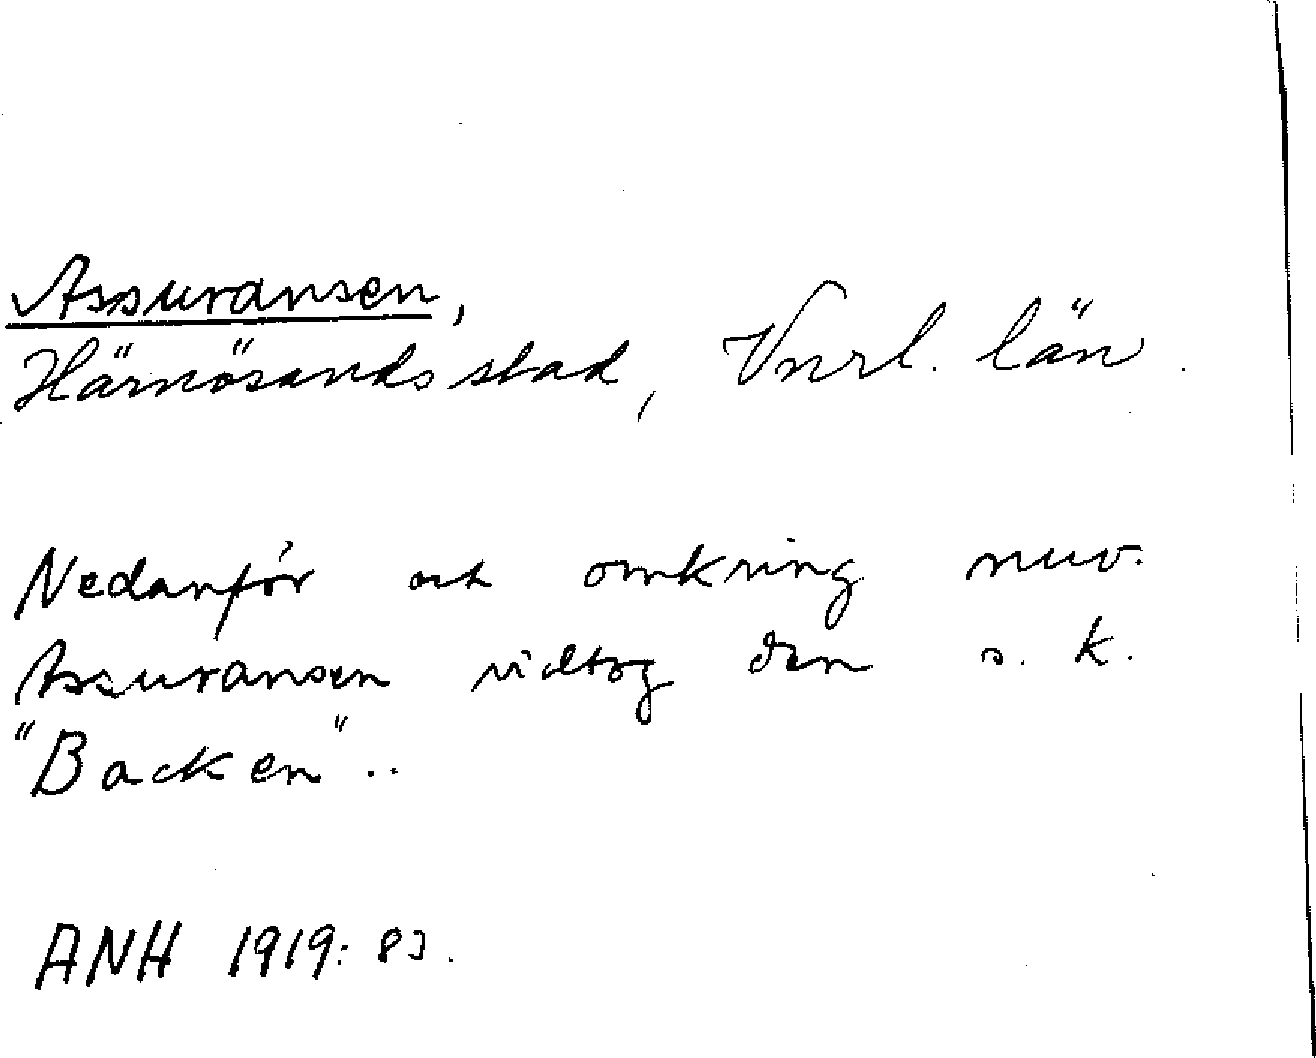 Assuransen,
Härnösands stad, Vnrl. län.
Nedanför och omkring nuv.
Assuransen vidtog den s. k.
"Backen"..
ANH 1919: 83.